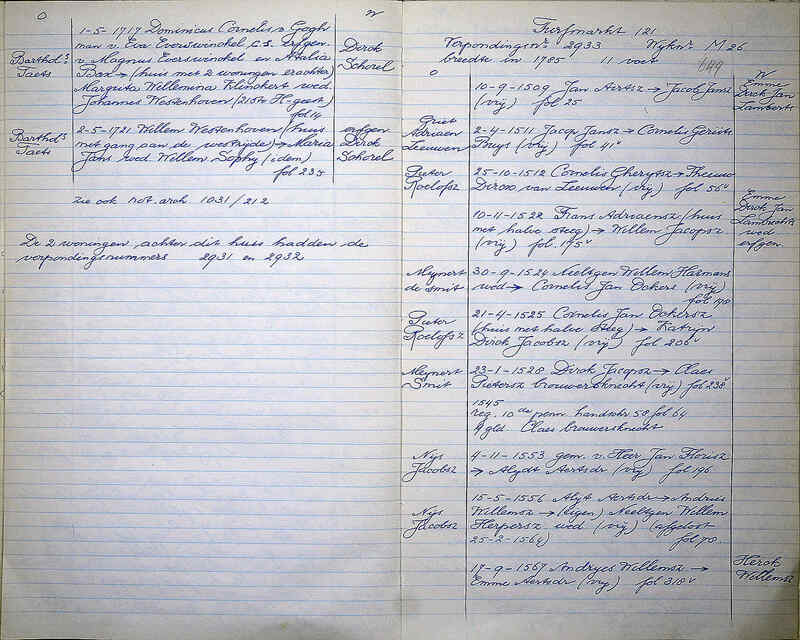 O
W
1-5-1717 Dominicus Cornelis v Gogh
man v. Eva Everswinckel c.s. erfgen.
Barthd.s v. Magnus Everswinckel en Atalia Dirck
Taets Bax → (huis met 2 woningen erachter) Schorel
Margrita Willemina Klinckert wed.
Johannes Westenhoven (2158 H-geest)
fol 14
Barthd.s 2-5-1721 Willem Westenhoven (huis erfgen
Taets met gang aan de westzijde) → Maria Dirck
Jans wed. Willem Sophy (idem) Schorel
fol 235
zie ook not. arch 1031/212
De 2 woningen achter dit huis hadden de
verpondingsnummers 2931 en 2932
Turfmarkt 121
Verpondingsnr. 2933 Wyknr. M.26
breedte in 1785 11 voet
149
O
W
10-9-1509 Jan Aertsz → Jacob Jansz Emme
(vrij) fol 25 Dirck Jan
Lamberts
Griet
Adriaen 2-4-1511 Jacop Jansz → Cornelis Gerritsz
Leeuwen Buys (vrij) fol 41v
Pieter 25-10-1512 Cornelis Gherytsz →
Roelofsz Dircxx van Leeuwen (vrij) fol 56v
10-11-1522 Frans Adriaensz (huis Emme
met halve steeg) → Willem Jacopsz Dirck Jan
(vrij) fol. 145v wed
erfgen.
Meynert 30-9-1524 Neeltgen Willem Harmans
de Smit wed → Cornelis Jan Dckers (vrij)
fol. 198
Pieter 21-4-1525 Cornelis Jan Dckersz
Roelofsz (huis met halve steeg) → Katrijn
Dirck Jacobsz (vrij) fol 206v
Meynert 23-1-1528 Dirck Jacopsz → Claes
Smit Pietersz brouwersknecht (vrij) fol 238v
1545
reg. 10de penn handschr 58 fol 64
4 gld. Claes brouwersknecht
Nijs 4-11-1553 gem. v. Heer Jan Florisz
Jacobsz → Alydt Aertsdr (vrij) fol 196
15-5-1556 Alyt Aertsdr → Andries
Nijs Willemsz → (eigen) Neeltgen Willem
Jacobsz Herpersz wed (vrij) (afgelost
25-2-1564) fol 78
17-9-1567 Andryes Willemsz → Herck
Emme Aertsdr (vrij) fol 318v Willemsz